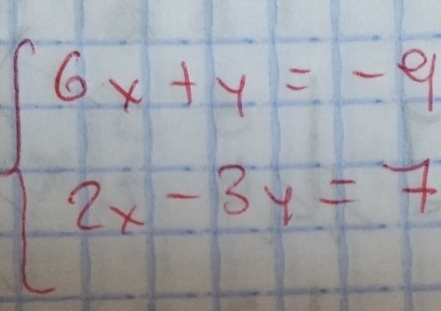 6x + y = -9
2x - 3y = 7